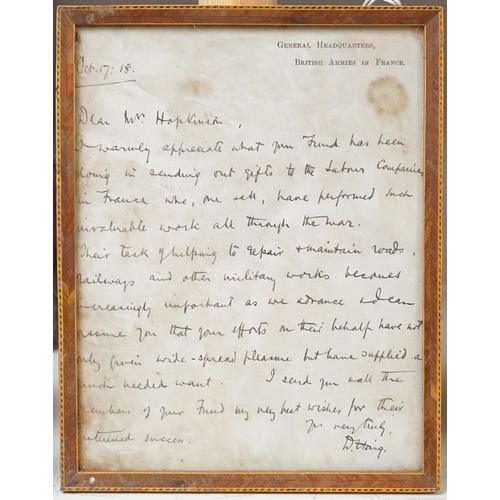 GENERAL HEADQUARTERS,
BRITISH ARMIES IN FRANCE.
Oct. 17: 18.
Dear Mr. Hopkinson,
I warmly appreciate what your Fund has been
doing in sending out gifts to the Labour Companies
in France who, one & all, have performed such
invaluable work all through the war.
Their task of helping to repair & maintain roads,
railways and other military works becomes
increasingly important as we advance & I can
assure you that your efforts on their behalf have not
only given wide-spread pleasure but have supplied a
much needed want. I send you & all the
members of your Fund my very best wishes for their
continued success.
Yrs very truly,
D. Haig.